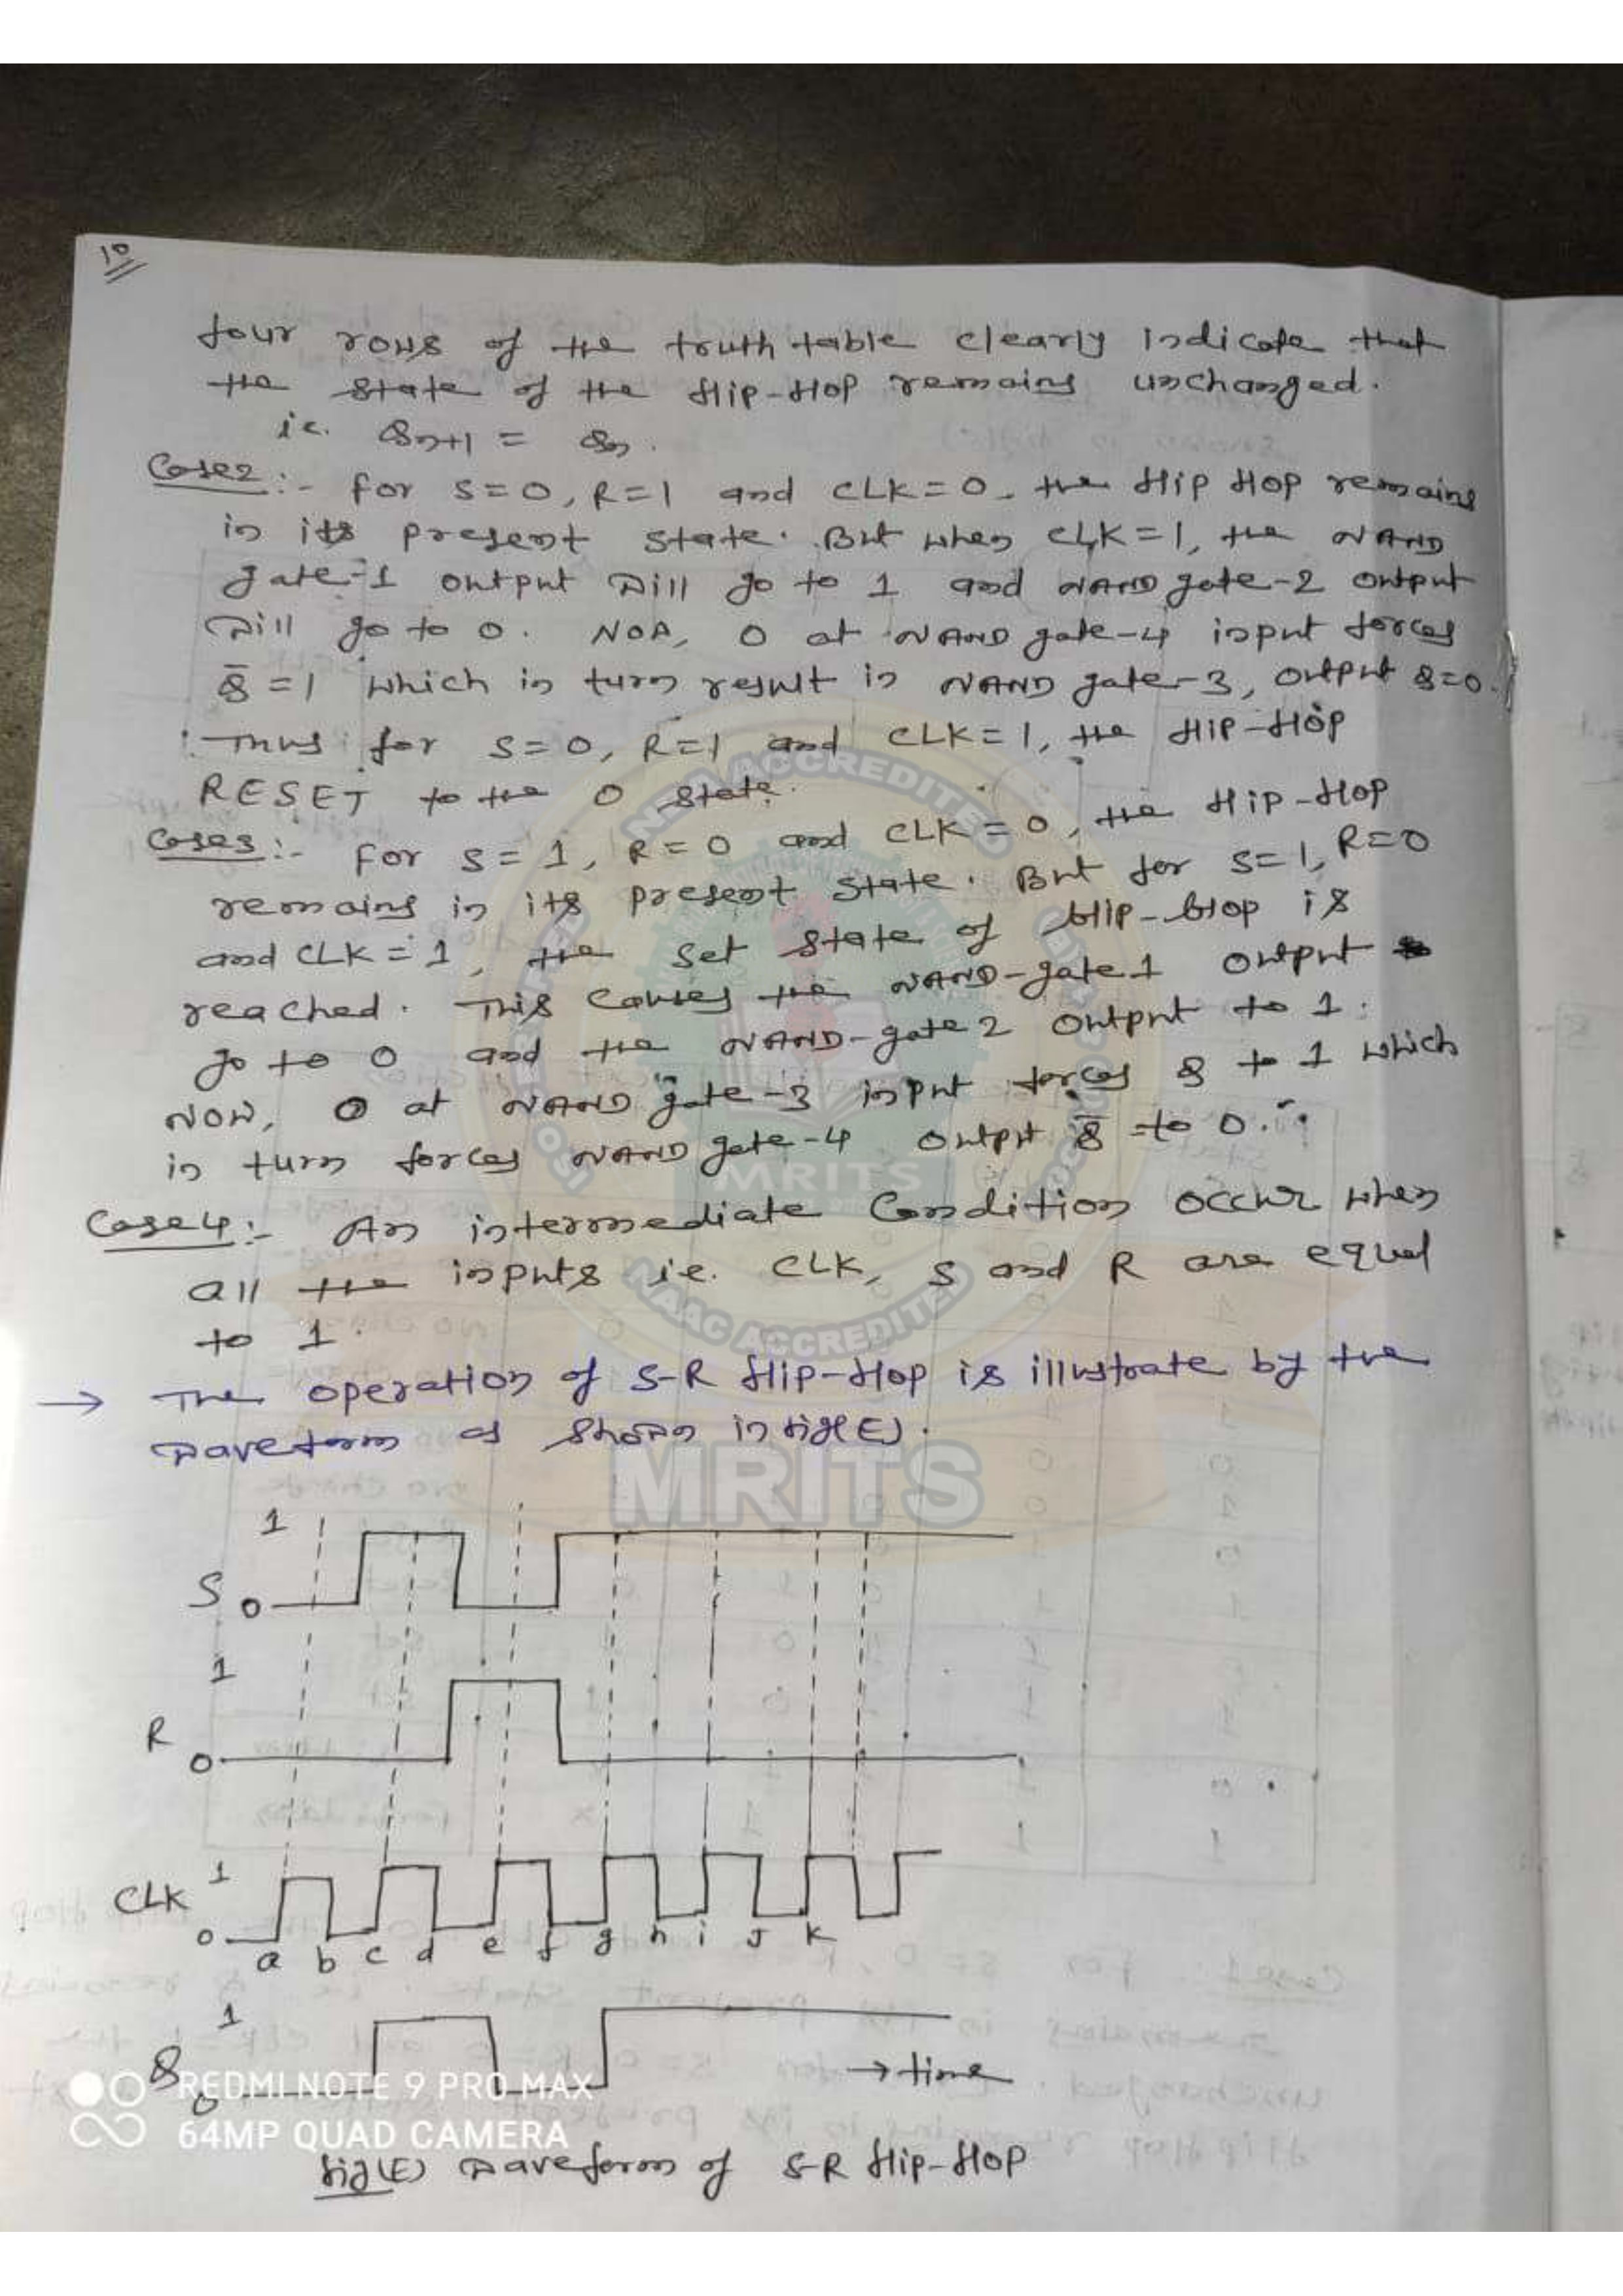 10
four rows of the truth table clearly indicate that
the state of the flip-flop remains unchanged.
i.e. Qn+1 = Qn.
Case2:- For S=0, R=1 and CLK=0, the flip flop remains
in its present state. But when CLK=1, the NAND
gate-1 output will go to 1 and NAND gate-2 output
will go to 0. Now, 0 at NAND gate-4 input forces
Q̅=1 which in turn result in NAND gate-3, output Q=0.
Thus for S=0, R=1 and CLK=1, the flip-flop
RESET to the 0 state.
Case3:- For S=1, R=0 and CLK=0, the flip-flop
remains in its present state. But for S=1, R=0
and CLK=1, the set state of flip-flop is
reached. This causes the NAND-gate1 output
go to 0 and the NAND-gate2 output to 1.
Now, 0 at NAND gate-3 input forces Q to 1 which
in turn forces NAND gate-4 output Q̅ to 0.
Case4:- An intermediate Condition occur when
all the inputs i.e. CLK, S and R are equal
to 1.
→ The operation of S-R flip-flop is illustrate by the
waveform as shown in fig(E).
1
S 0
1
R 0
1
CLK 0
a b c d e f g h i J k
1
Q 0 → time
fig(E) waveform of S-R flip-flop
NBA ACCREDITED
NAAC ACCREDITED
MRITS
MRITS
REDMI NOTE 9 PRO MAX
64MP QUAD CAMERA